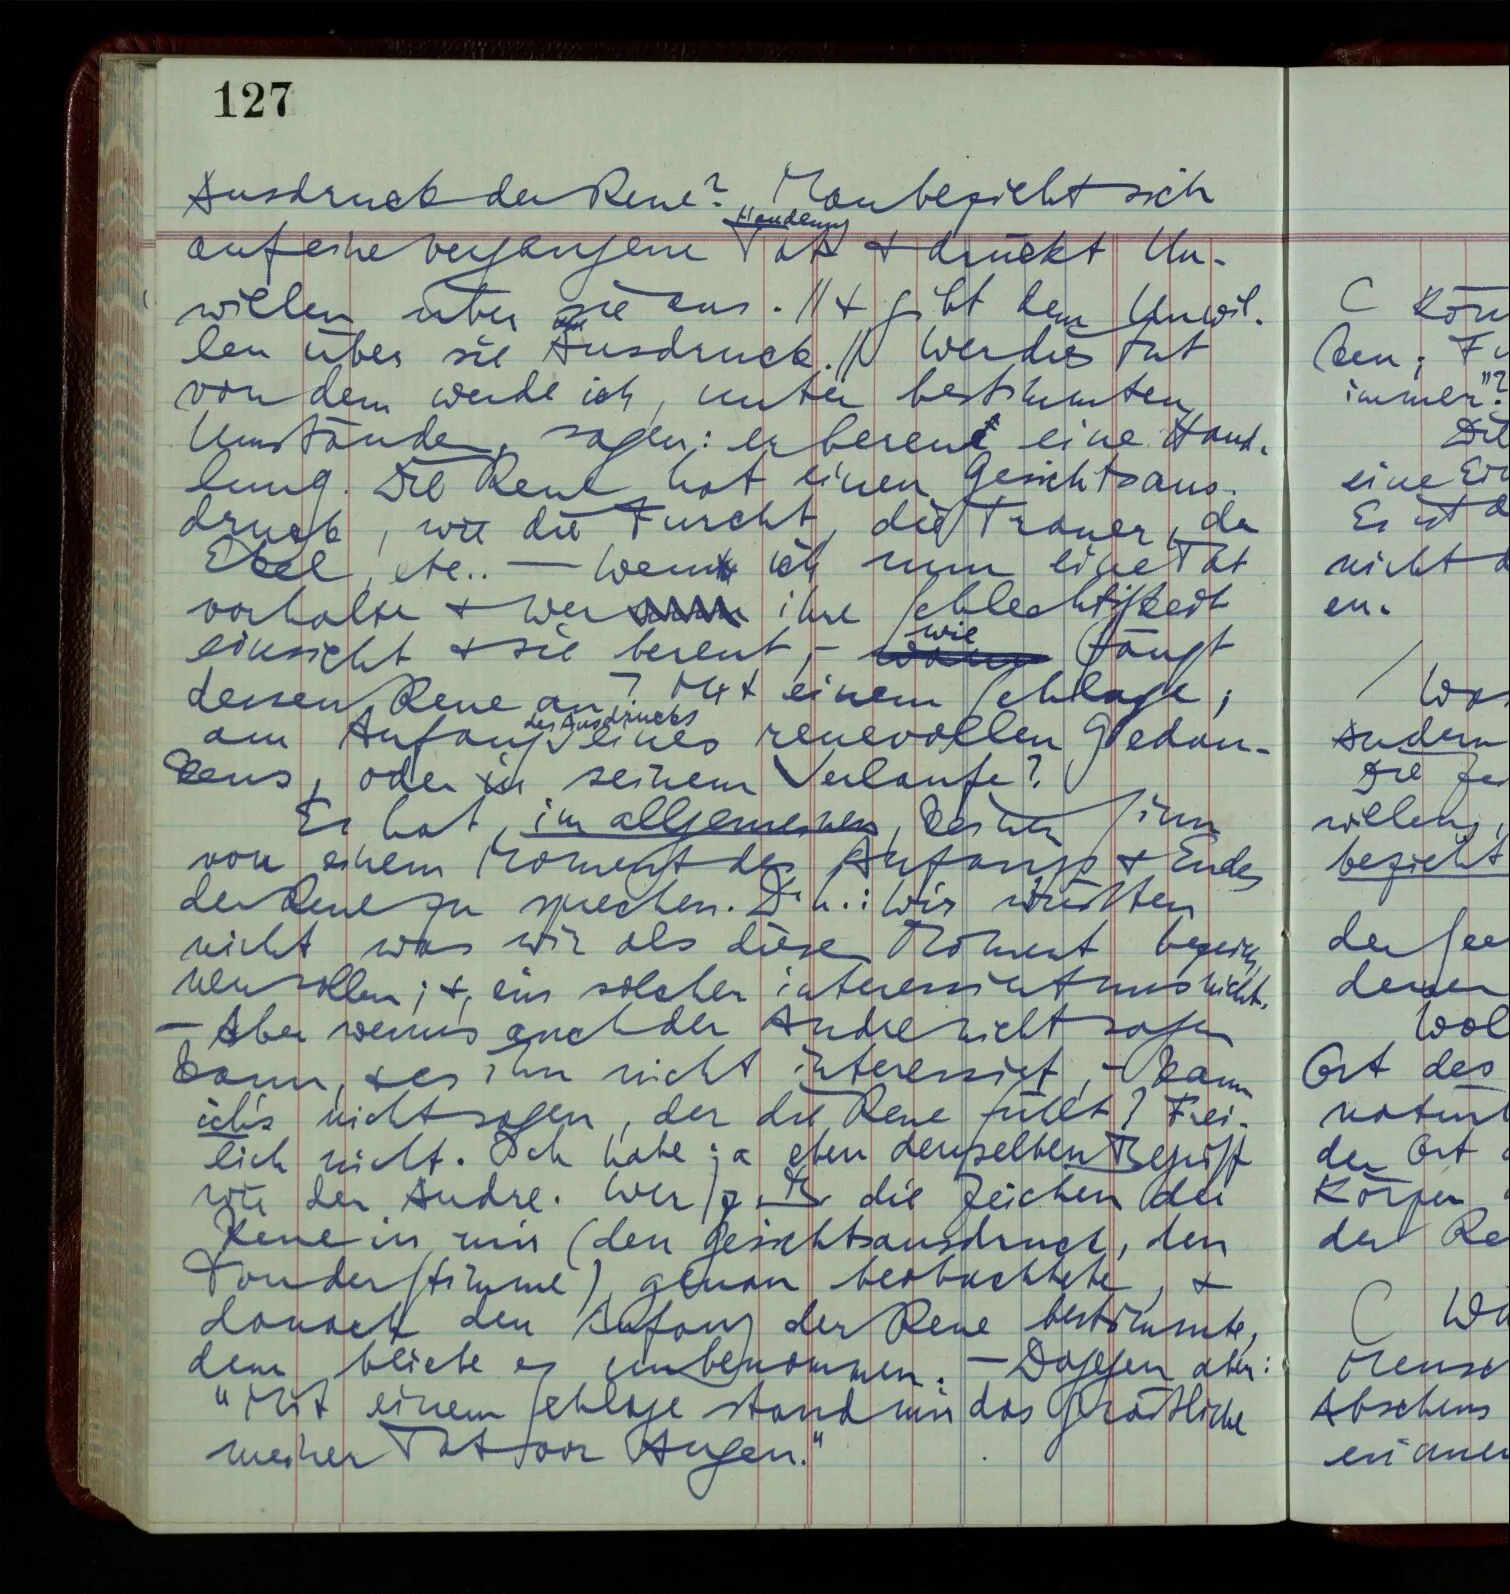 127
Ausdruck der Reue? „Man bezieht sich
Handlung
auf eine vergangene Tat & drückt Un-
willen über sie aus. // & gibt dem Unwil-
len über sie Ausdruck. // Wer dies tut
von dem werde ich, unter bestimmten
Umständen, sagen: er bereut eine Hand-
lung. Die Reue hat einen Gesichtsaus-
druck, wie die Furcht, die Trauer, der
Ekel, etc.. — Wenn ich nun eine Tat
vorhalte & wer ihre Schlechtigkeit
einsieht & sie bereut, – wie fängt
dessen Reue an? Mit einem Schlage;
des Ausdrucks
am Anfang eines reuevollen Gedan-
kens, oder in seinem Verlaufe?
Es hat, im allgemeinen, keinen Sinn
von einem Moment des Anfangs & Endes
der Reue zu sprechen. D.h.: Wir wüßten
nicht was wir als diesen Moment bezeich-
nen sollen; &, ein solcher interessiert uns nicht.
— Aber wenns auch der Andre nicht sagen
kann, & es ihn nicht interessiert, – kann
ich's nicht sagen, der die Reue fühlt? Frei-
lich nicht. Ich habe ja eben denselben Begriff
wie der Andre. Wer z.B. die Zeichen der
Reue in mir (den Gesichtsausdruck, den
Ton der Stimme) genau beobachtete, &
danach den Anfang der Reue bestimmte,
dem bliebe es unbenommen. — Dagegen aber:
"Mit einem Schlage stand mir das Gräßliche
meiner Tat vor Augen."
C
immer"?
Die
Es ist
nicht
en.
/ Was
Andern
Die
willen,
bezieht
der See
denen
Wol
Ort des
der Ort
Körper
der Re
C
Mensch
Abscheus